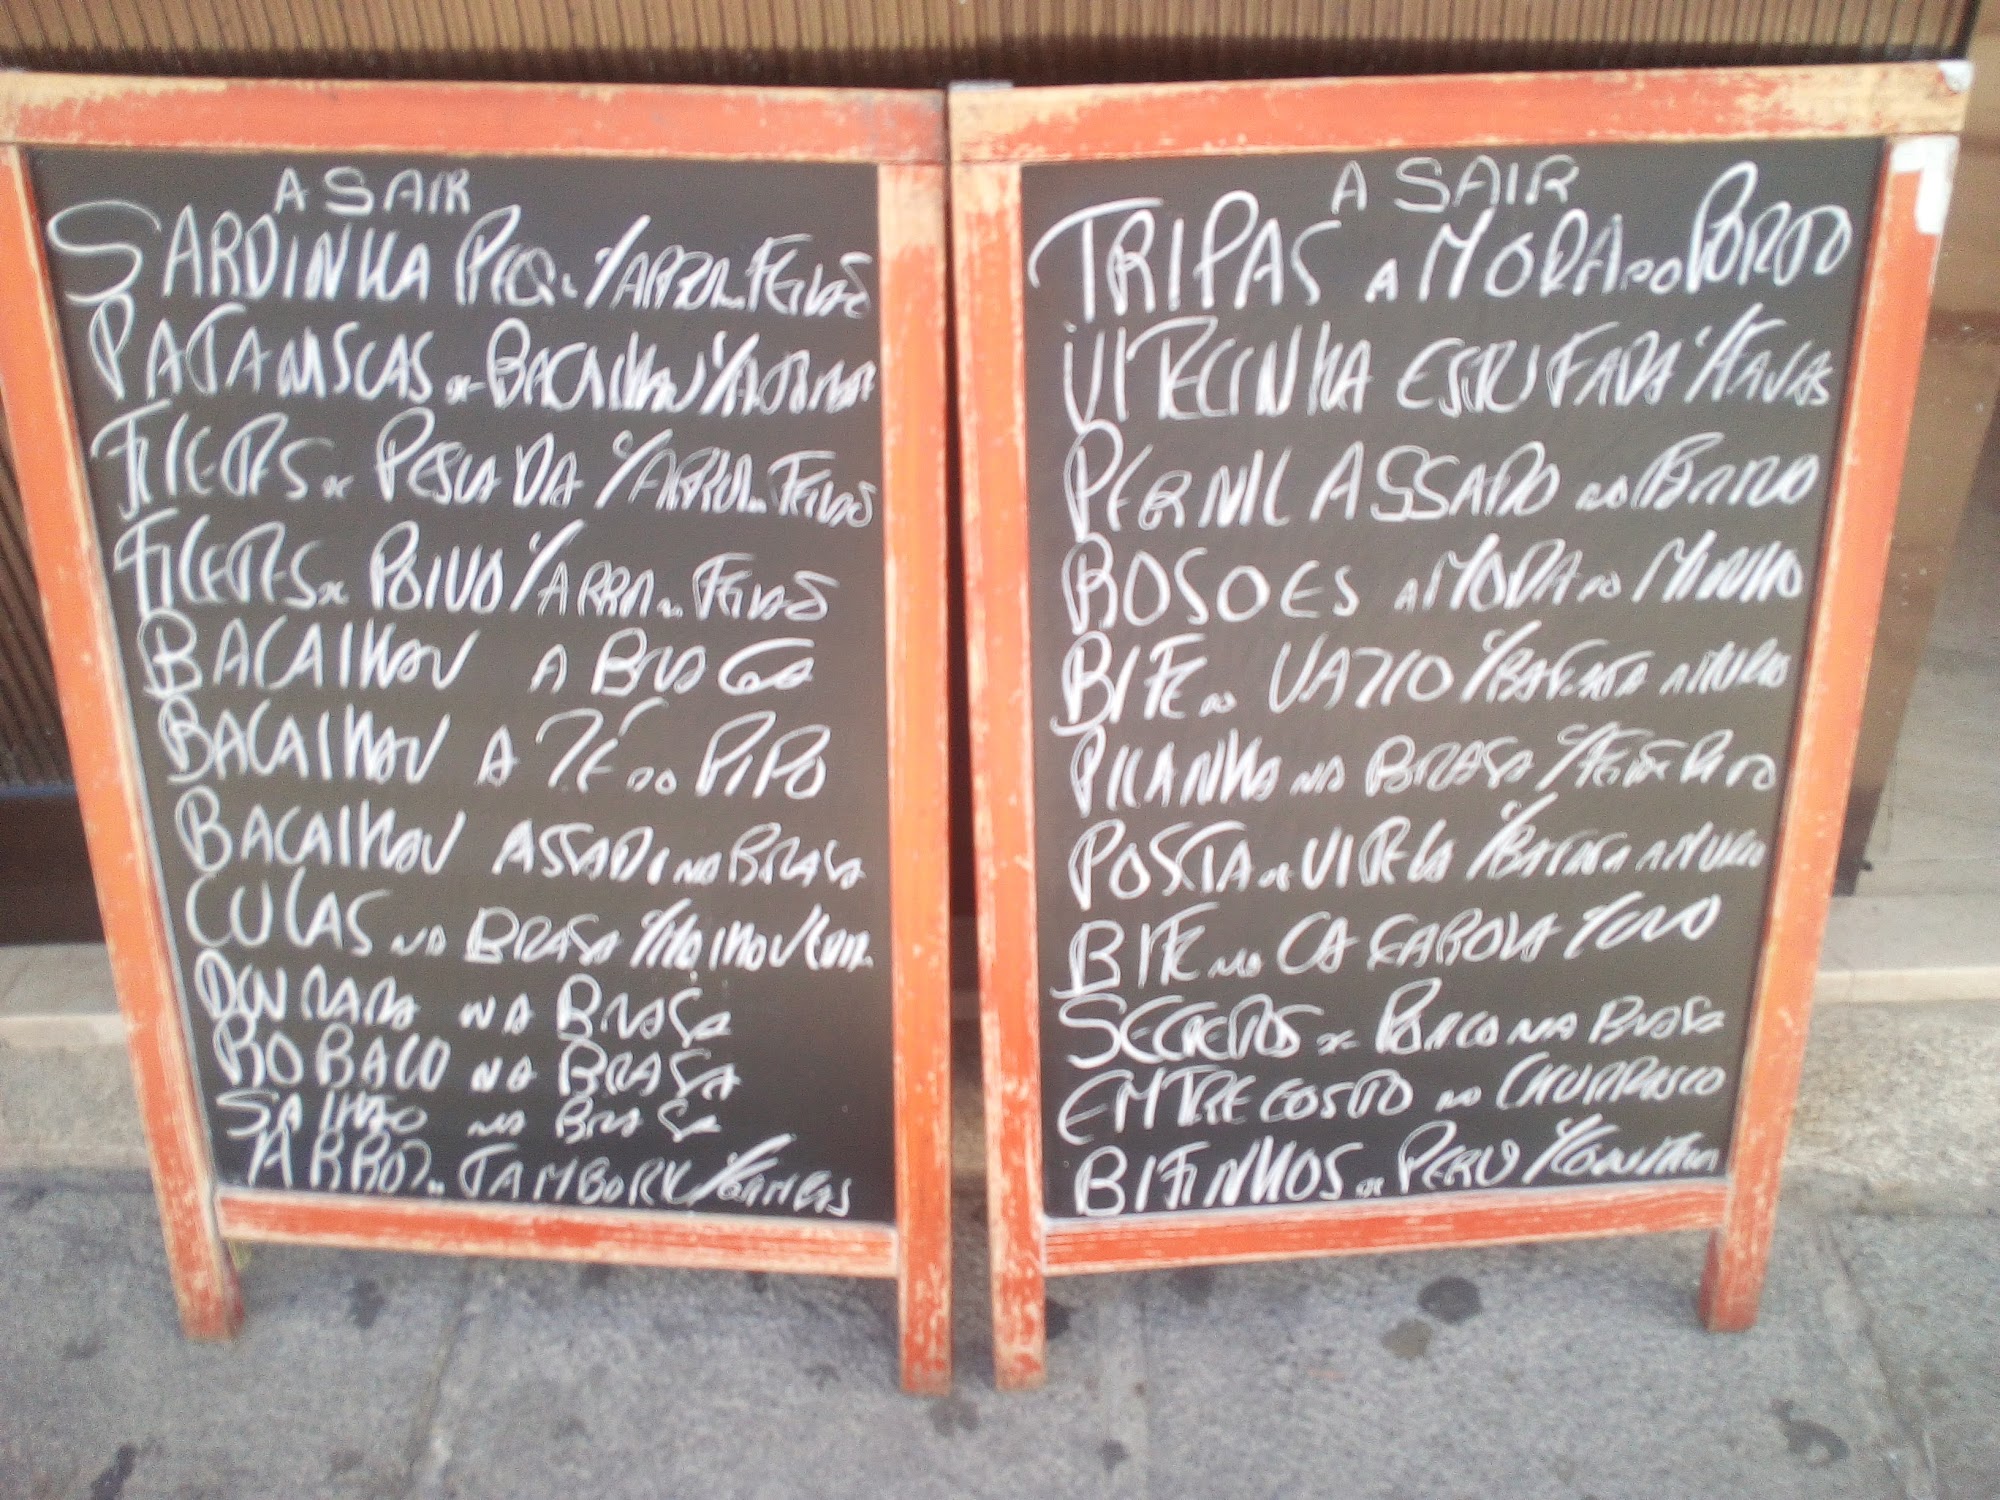 A SAIR
SARDINHA PEQ. C/ARROZ DE FEIJÃO
PATANISCAS DE BACALHAU C/ARROZ
FILETES DE PESCADA C/ARROZ DE FEIJÃO
FILETES DE POLVO C/ARROZ DE FEIJÃO
BACALHAU A BRAGA
BACALHAU A ZÉ DO PIPO
BACALHAU ASSADO NA BRASA
LULAS NA BRASA C/MOLHO
DOURADA NA BRASA
ROBALO NA BRASA
SALMÃO NA BRASA
ARROZ DE TAMBORIL C/GAMBAS
A SAIR
TRIPAS A MODA DO PORTO
VITELINHA ESTUFADA C/FAVAS
PERNIL ASSADO NO
ROJOES A MODA DO MINHO
BIFE DO VAZIO C/BATATA A MURRO
PICANHA NA BRASA C/FEIJÃO PRETO
POSTA DE VITELA C/BATATA A MURRO
BIFE NA CAÇAROLA C/OVO
SECRETOS DE PORCO NA BRASA
ENTRECOSTO NO CHURRASCO
BIFINHOS DE PERU C/COGUMELOS